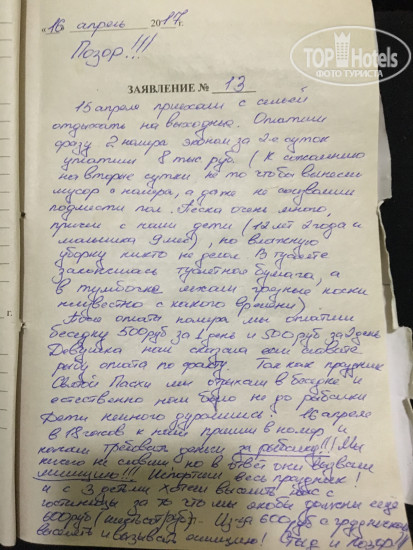 TOPHotels
ФОТО ТУРИСТА
"16" апрель 2017 г.
Позор!!!
ЗАЯВЛЕНИЕ № 13
15 апреля приехали с семьёй
отдыхать на выходные. Оплатили
сразу 2 номера эконом за 2-е суток
уплатили 8 тыс руб (К сожалению
на вторые сутки не то чтобы вынести
мусор с номера, а даже не
подмести пол. Песка очень много,
причем с нами дети (12 лет 2 года и
малышка 9 мес), но влажную
уборку никто не делал. В туалете
закончилась туалетная бумага, а
в тумбочке лежали грязные носки
неизвестно с какого времени).
Также оплаты номера мы оплатили
беседку 500 руб за 1 день и 500 руб за 2 день
Девушка нам сказала если словите
рыбу оплата по факту. Так как праздник
Святой Пасхи мы отдыхали в беседке и
естественно нам было не до рыбалки
Дети немного дурачились! 16 апреля
в 18 часов к нам пришли в номер и
начали требовать деньги за рыбалку!!! Мы
ничего не словили, но в ответ они вызвали
милицию!!! Испортили весь праздник!
и с 3 детьми хотели выселить нас с
гостиницы за то что мы якобы должны ещё
600 руб (шестьсот руб). Из-за 600 руб
выселять и вызывать милицию! Позор!!!